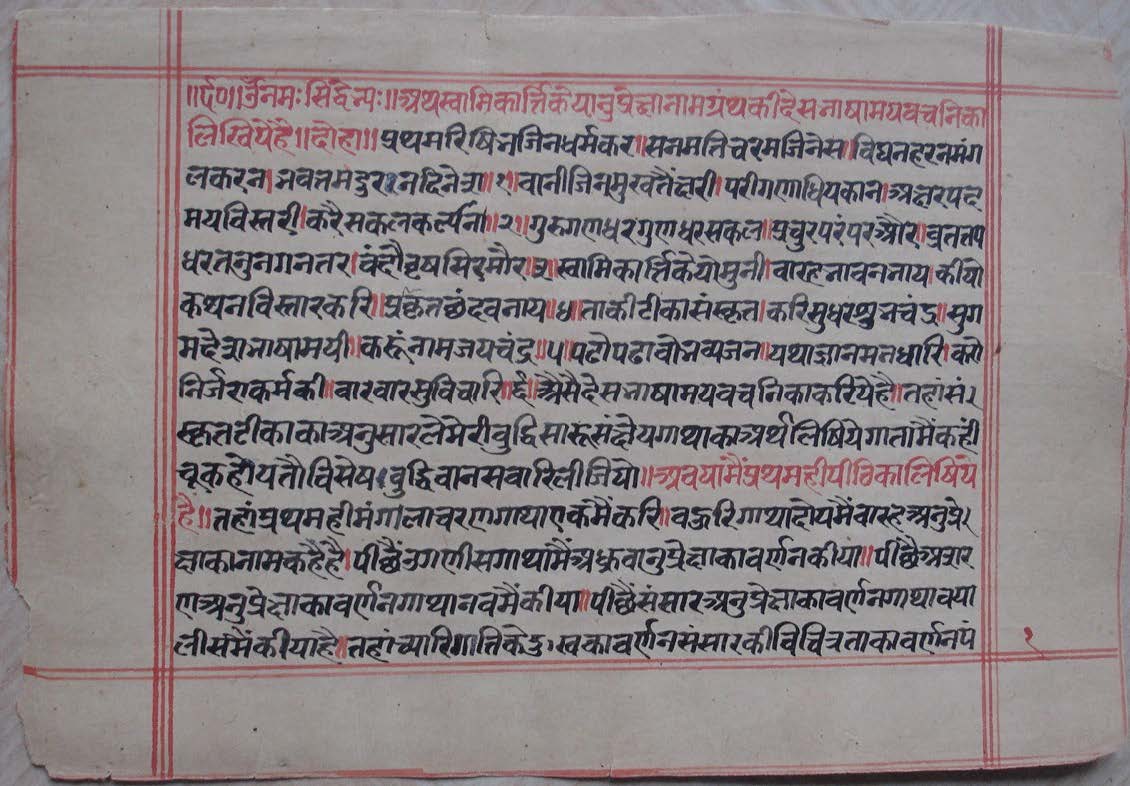 ॥ए६०॥ ॐनमः सिद्धेभ्यः॥ अथस्वामिकार्त्तिकेयानुप्रेक्षानामग्रंथकीदेसभाषामयवचनिका
लिखियेहै॥दोहा॥ प्रथमरिषिभजिनधर्मकर॥सनमतिचरमजिनेस॥विघनहरनमंग
लकरन।भवतमदुरनदिनेश॥१॥वानीजिनमुखतैंक्षरी।परीगणाधिपकान।अक्षरपद
मयविस्तरी।करैसकलकल्यान॥२॥गुरुगणधरगुणधरसकल॥प्रचुरपरंपरऔर।व्रततप
धरतनुनगनतर।वंदौवृषसिरमौर॥३॥स्वामिकार्त्तिकेयोमुनी।वारहभावनभाय।कीयो
कथनविस्तारकरि॥प्राकृतछंदवनाय॥४॥ताकीटीकासंस्कृत।करिसुधरशुभचंद्र॥सुग
मदेशभाषामयी॥करूंनामजयचंद्र॥५॥पढोपढावोभव्यजन॥यथाज्ञानमनधारि।करो
निर्जराकर्मकी॥वारवारसुविचारि॥६॥अैसैदेसभाषामयवचनिकाकरियेहै॥तहांसं
स्कृतटीकाकाअनुसारलेमेरीबुद्धिसारूसंक्षेपगाथाकाअर्थलिषियेगातामैंकही
चूकहोयतौविसेषबुद्धिवानसवारिलीजियो॥अवयामैंप्रथमहीपीठिकालिषिये
है॥तहांप्रथमहीमंगलाचरणगाथाएकमैंकरि॥वऊरिगाथादोयमैंवारहअनुप्रे
क्षाकानामकहैंहै।पीछैंउगणीसगाथामैंअध्रुवानुप्रेक्षाकावर्णनकीया॥पीछैअशर
णअनुप्रेक्षाकावर्णनगाथानवमैंकीया॥पीछैंसंसारअनुप्रेक्षाकावर्णनगाथावया
लीसमैंकीयाहै॥तहांच्यारिगतिकेदुःखकावर्णनसंसारकीविचित्रताकावर्णनपं
१